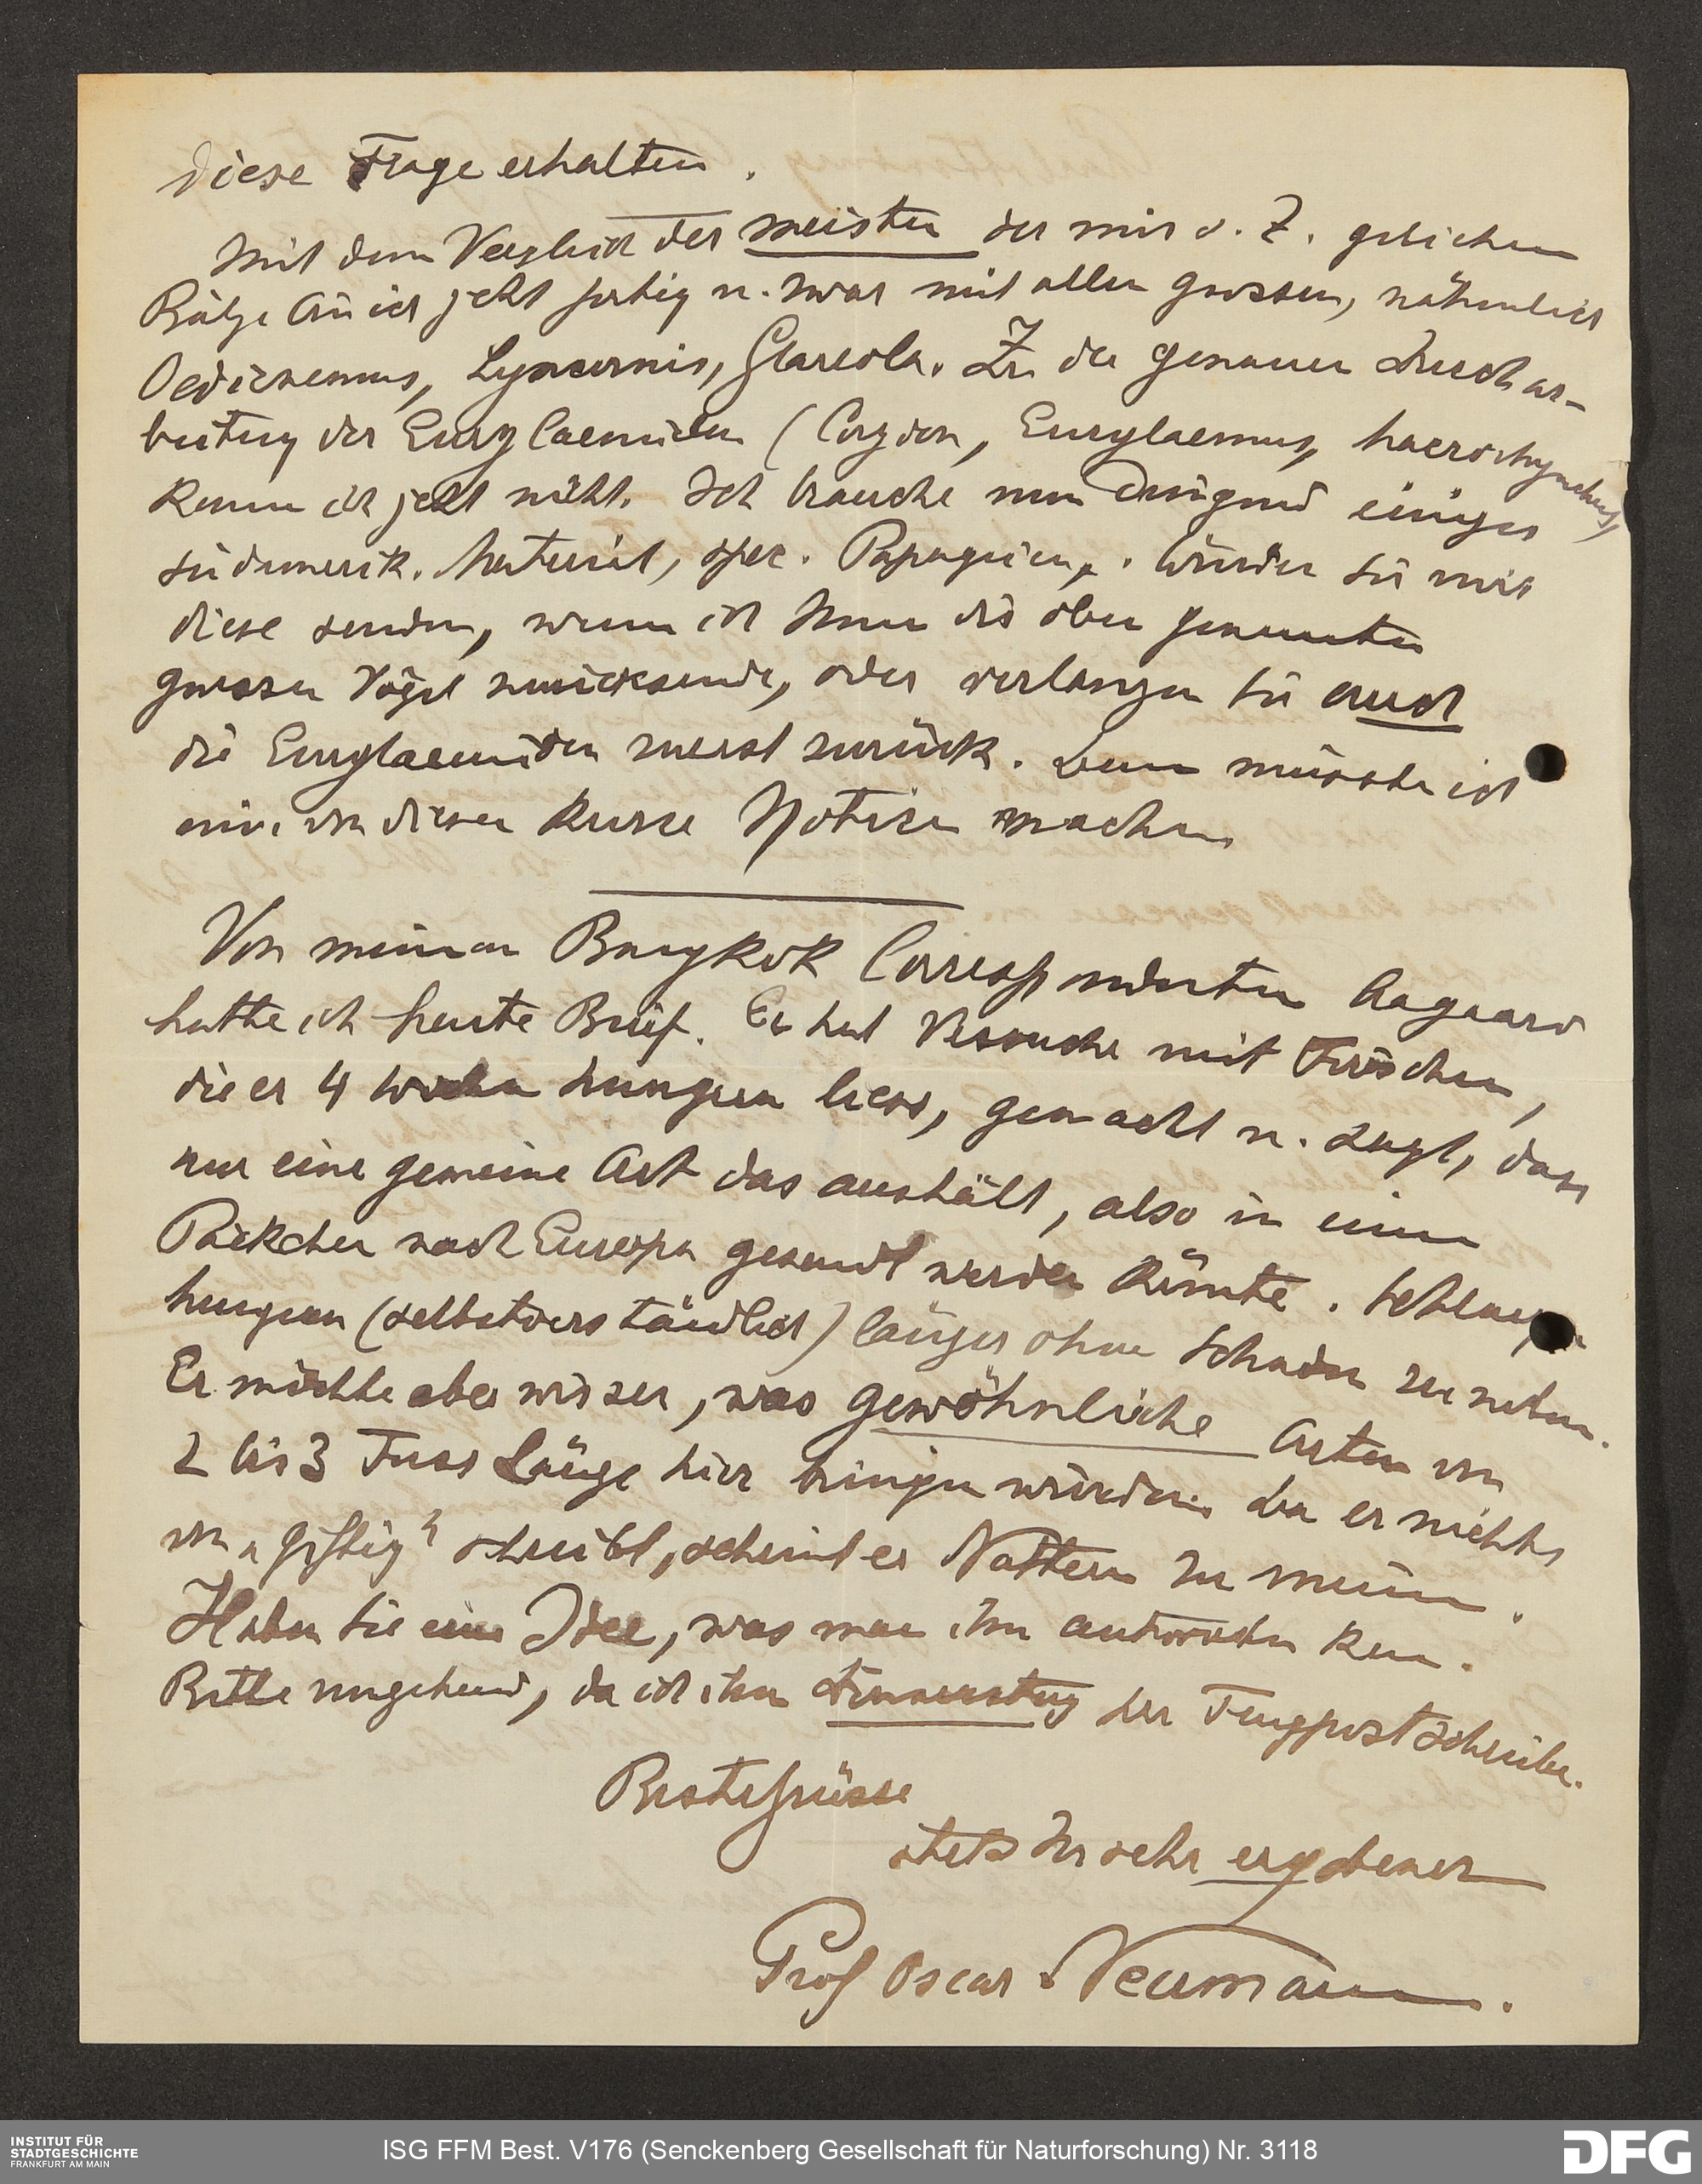 diese Frage erhalten.
Mit dem Vergleich der meisten der mir s. Z. geliehenen
Bälge bin ich jetzt fertig u. zwar mit allen grossen, nähmlich
Oedicnemus, Lyncornis, Glareola. Zu der genauen Durchar-
beitung der Eurylaemiden (Corydon, Eurylaemus,
komm ich jetzt nicht. Ich brauche nun dringend einiges
südamerik. Material, spec. Papageien. Würden Sie mir
diese senden, wenn ich Ihnen die oben genannten
grossen Vögel zurücksende, oder verlangen Sie auch
die Eurylaemiden zuerst zurück. Dann müsste ich
mir von diesen kurze Notizen machen
Von meinem Bangkok Correspondenten Aagaard
hatte ich heute Brief. Er hat Versuche mit Fröschen,
die er 4 Wochen hungern liess, gemacht u. sagt, dass
nur eine gemeine Art das aushält, also in einem
Päckchen nach Europa gesandt werden könnte. Schlangen
hungern (selbstverständlich) länger ohne Schaden zu nehmen.
Er möchte aber wissen, was gewöhnliche Arten von
2 bis 3 Fuss Länge hier bringen würden. Da er nichts
von „giftig" schreibt, scheint er Nattern zu meinen.
Haben Sie eine Idee, was man ihm antworten kann.
Bitte umgehend, da ich ihm Donnerstag per Flugpost schreibe.
Beste Grüsse
stets Ihr sehr ergebener
Prof Oscar Neumann.
INSTITUT FÜR
STADTGESCHICHTE
FRANKFURT AM MAIN
ISG FFM Best. V176 (Senckenberg Gesellschaft für Naturforschung) Nr. 3118
DFG